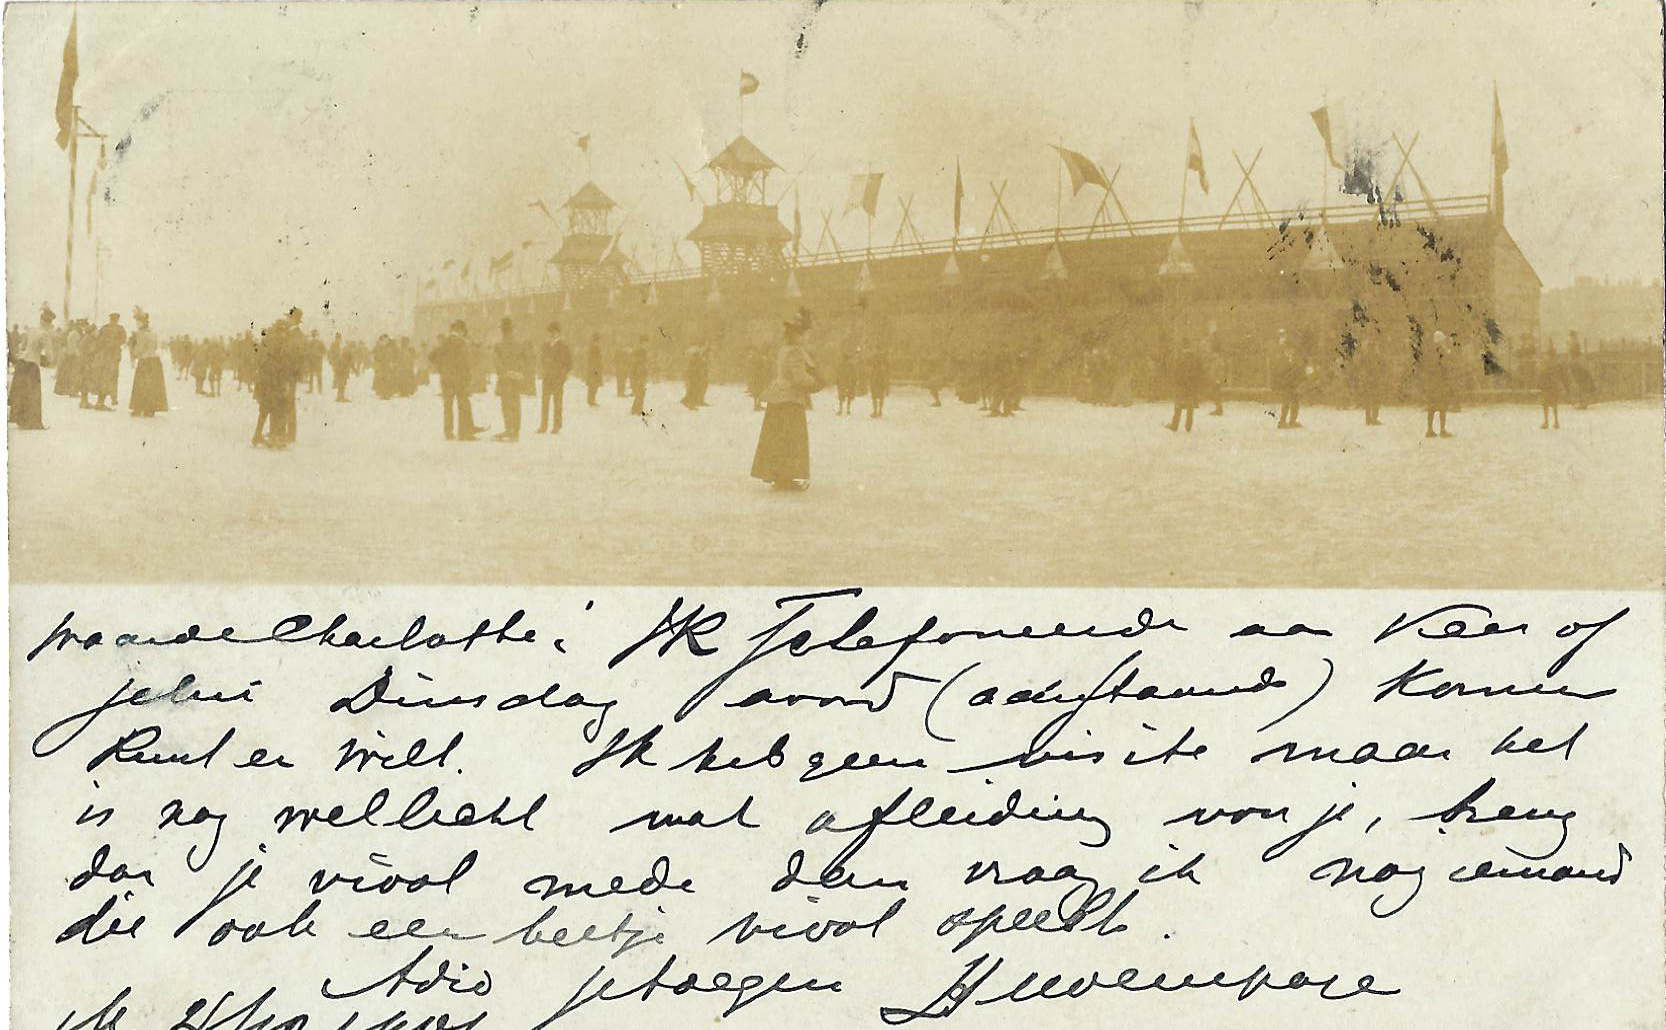 waarde Charlotte! Ik Telefoneerde aan Keer of
je Dinsdag avond (aanstaande) komen
kunt en wilt. Ik heb geen visite maar het
is nog wellicht wat afleiding voor je, breng
dan je viool mede dan vraag ik nog iemand
die ook een beetje viool speelt.
Adio